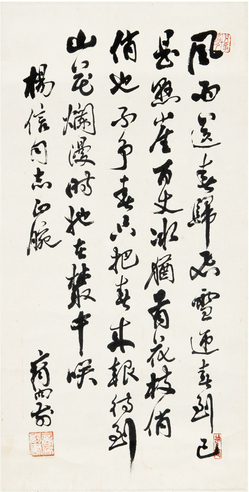 风雨送春归飞雪迎春到已
是悬崖百丈冰犹有花枝俏
俏也不争春只把春来报待到
山花爛漫時她在叢中笑
楊信同志正腕